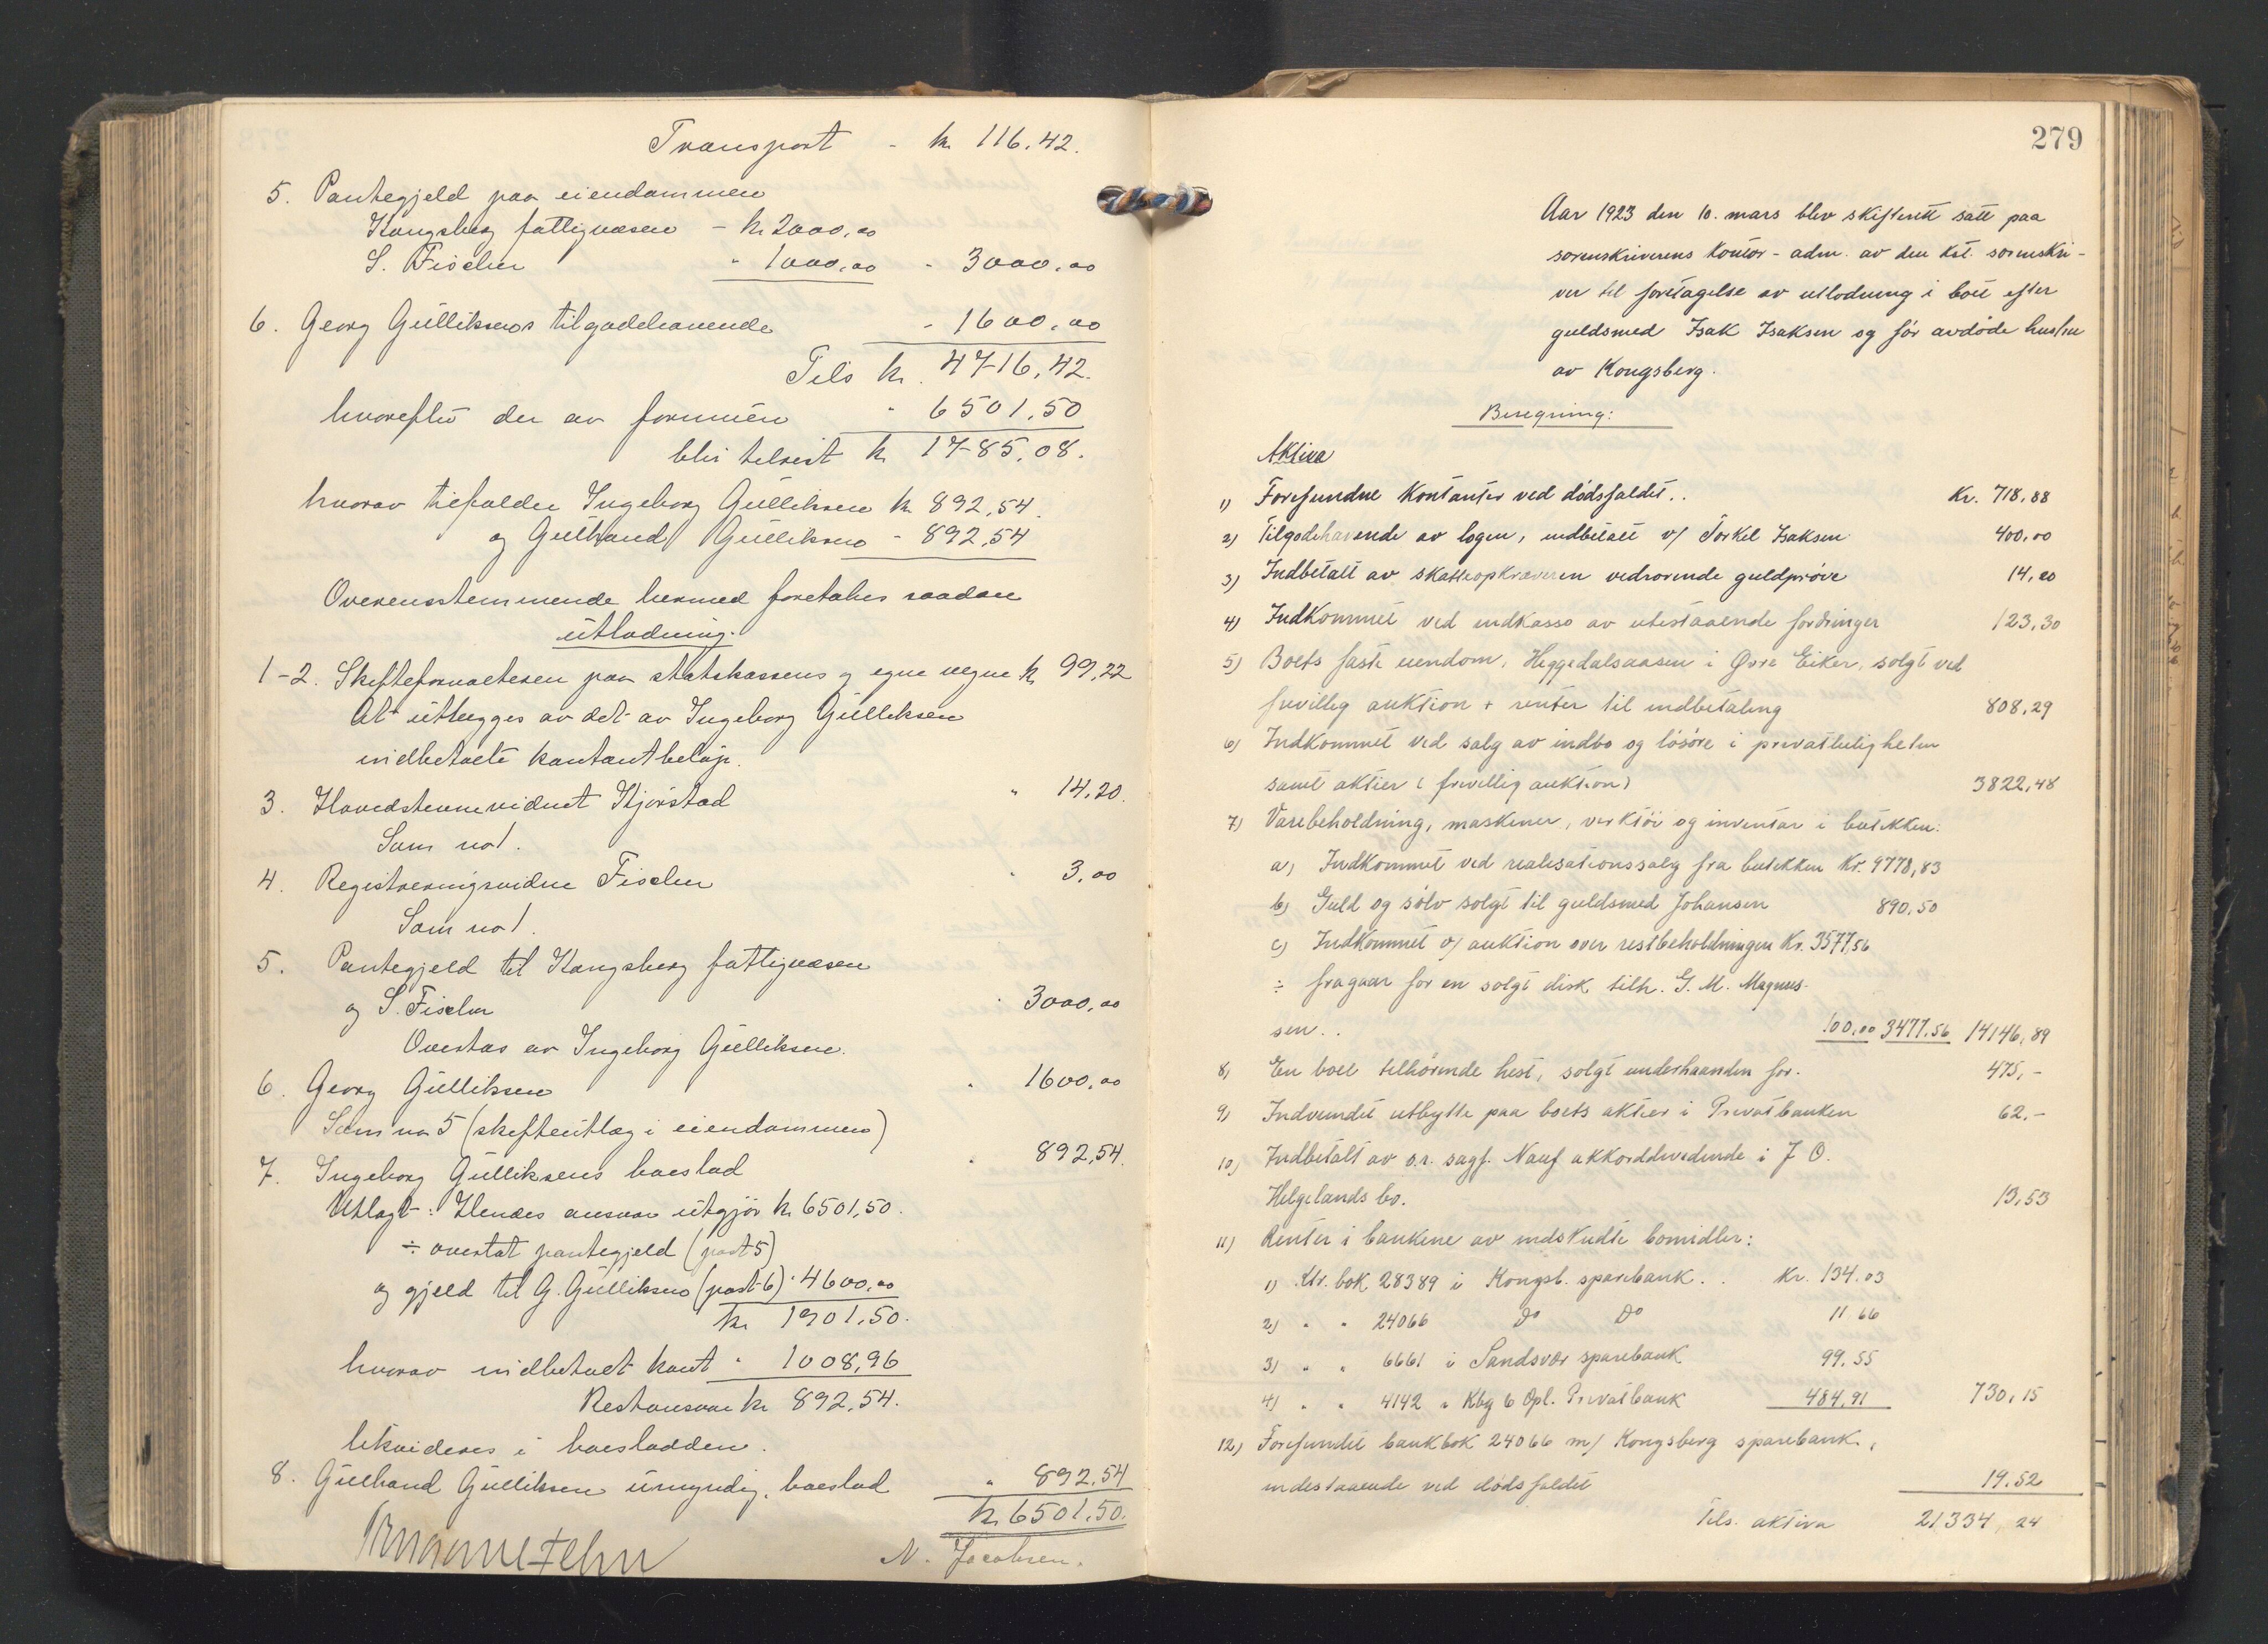 Transport - kr 116.42.
5. Pantegjeld paa eiendommen
Kongsberg fattigvæsen - kr 2000,00
S. Fischer " 1000,00 - 3000,00
6. Georg Gulliksens tilgodehavende - 1600,00
Tils kr. 4716,42.
hvorefter der av formuen " 6501,50
blir tilrest kr 1785,08.
hvorav tilfalder Ingeborg Gulliksen kr 892,54.
og Gulhand Gulliksen - 892,54
Overensstemmende hermed foretokes saadan
utlodning.
1-2. Skifteforvalteren paa statskassens og egne vegne kr 99,22
At utlægges av det av Ingeborg Gulliksen
indbetalte kontantbeløp.
3. Hovedstevnevidnet Kjørstad " 14,20.
Som no 1.
4. Registreringsvidne Fischer " 3,00
Som no 1.
5. Pantegjeld til Kongsberg fattigvæsen
og S. Fischer " 3000,00
Overtas av Ingeborg Gulliksen.
6. Georg Gulliksen " 1600,00
Som no 5 (skifteutlæg i eiendommen)
7. Ingeborg Gulliksens boeslod " 892,54.
Utlagt: Hendes ansvar utgjør kr 6501,50.
÷ overtat pantegjeld (post 5)
og gjeld til G. Gulliksen (post 6) " 4600,00
kr 1901,50.
hvorav indbetalt kont " 1008,96
Restansvar kr 892,54.
likvideres i boeslodden.
8. Gulhand Gulliksen umyndig, boeslod " 892,54
kr 6501,50.
N. Jacobsen.
279
Aar 1923 den 10. mars blev skifterett satt paa
sorenskriverens kontor - adm. av den kst. sorenskri-
ver til foretagelse av utlodning i boet efter
guldsmed Isak Isaksen og før avdøde hustru
av Kongsberg.
Beregning:
Aktiva
1) Forefundne kontanter ved dødsfaldet.. Kr. 718,88
2) Tilgodehavende av logen, indbetalt v/ Torkel Isaksen 400,00
3) Indbetalt av skatteopkræveren vedrørende guldprøve 14,20
4) Indkommet ved indkasso av utestaaende fordringer 123,30
5) Boets faste eiendom, Heggedalsaasen i Øvre Eiker, solgt ved
frivillig auktion + renter til indbetaling 808,29
6) Indkommet ved salg av indbo og løsøre i privatleiligheten
samt aktier (frivillig auktion) 3822,48
7) Varebeholdning, maskiner, verktøi og inventar i butikken:
a) Indkommet ved realisationssalg fra butikken Kr. 9778,83
b) Guld og sølv solgt til guldsmed Johansen 890,50
c) Indkommet v/ auktion over restbeholdningen Kr. 3577,56
÷ fragaar for en solgt disk tilh. G. M. Magnus-
sen.. 100,00 3477,56 14146,89
8) En boet tilhørende hest, solgt underhaanden for. 475,-
9) Indvundet utbytte paa boets aktier i Privatbanken 62.-
10) Indbetalt av o.r. sagf. Nauf akkorddividende i J O.
Helgelands bo. 13,53
11) Renter i bankene av indskudte bomidler:
1) Ktr. bok 28389 i Kongsb. sparebank.. Kr. 134.03
2) " " 24066 Do Do 11.66
3) " " 6661 i Sandsvær sparebank 99.55
4) " " 4142 " Kbg & Opl. Privatbank 484,91 730,15
12) Forefundet bankbok 24066 m/ Kongsberg sparebank,
indestaaende ved dødsfaldet 19.52
Tils. aktiva 21334,24